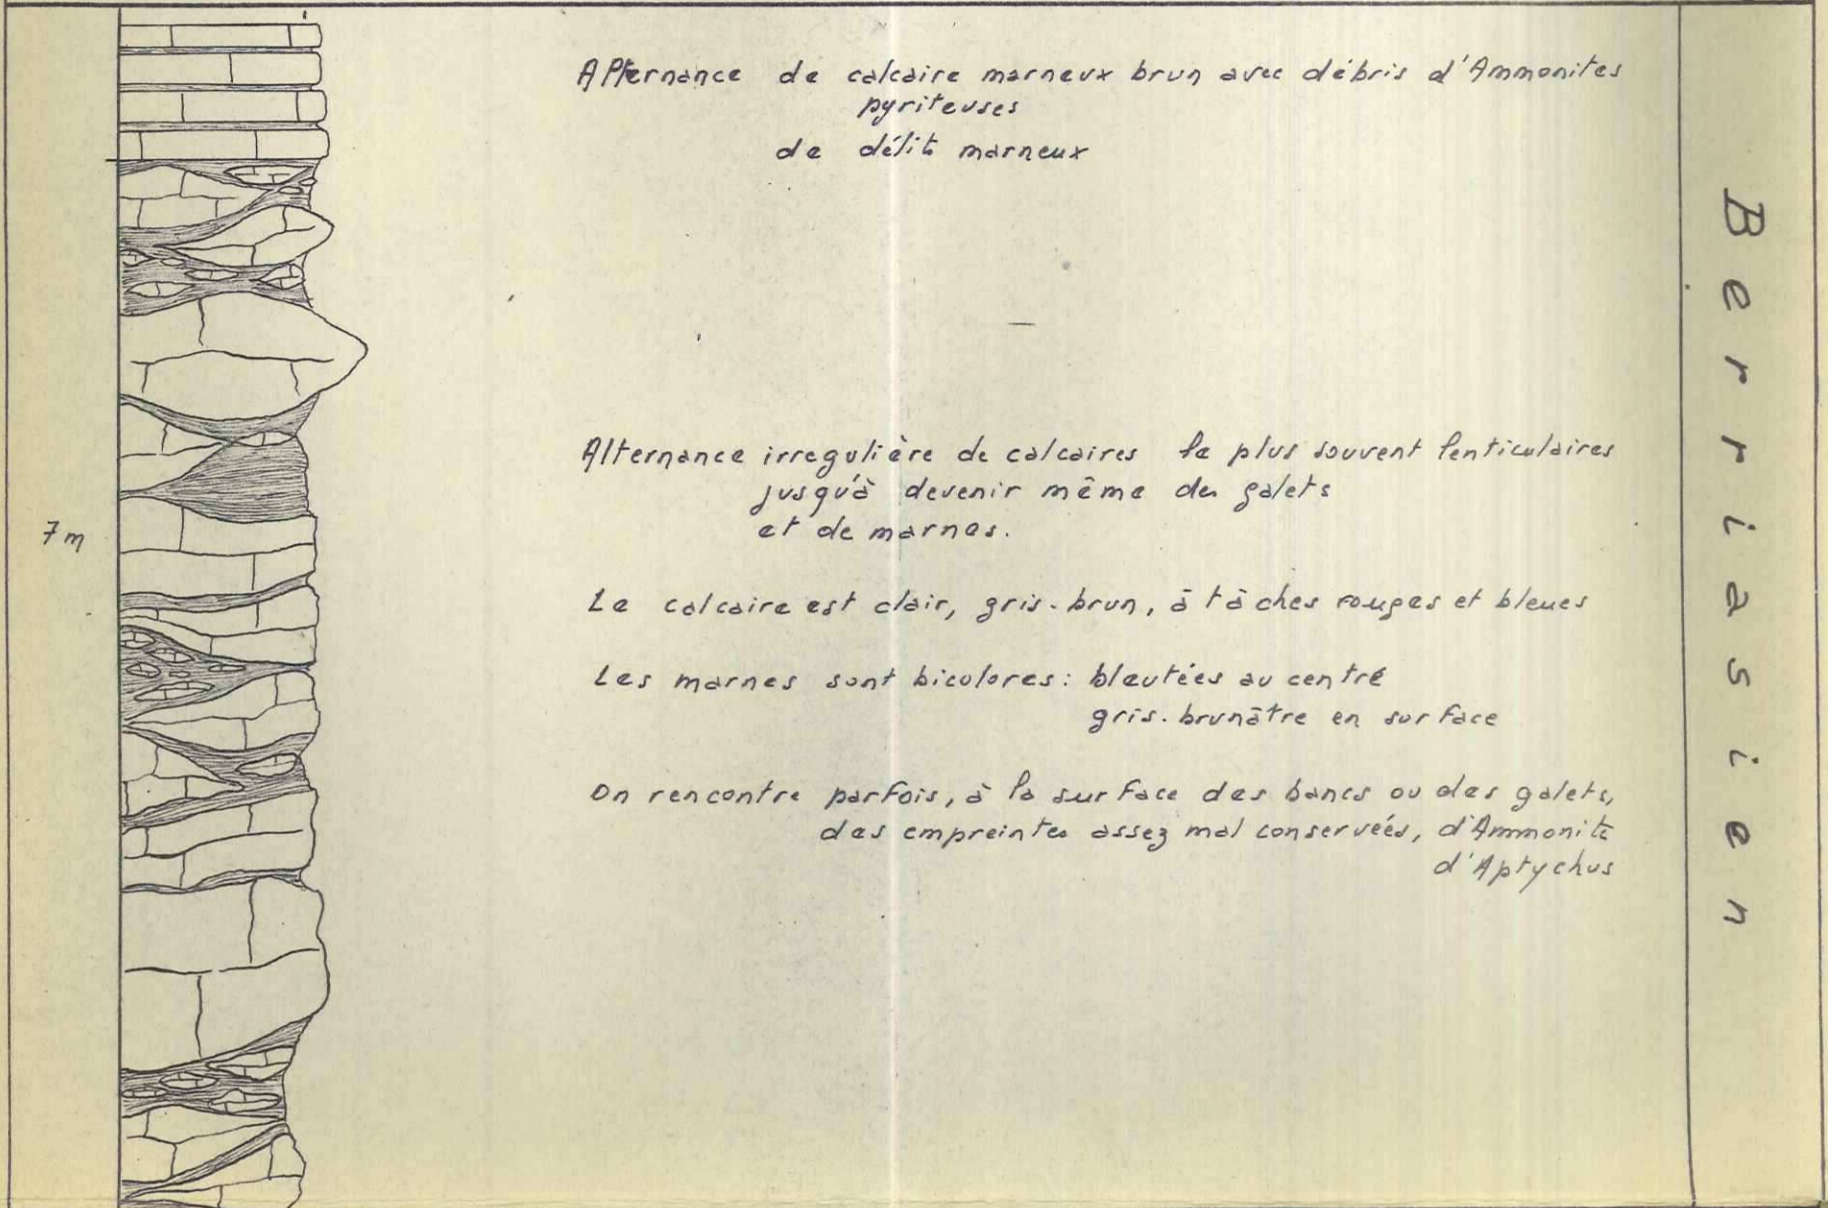 Alternance de calcaire marneux brun avec débris d'Ammonites
pyriteuses
de délits marneux
Alternance irregulière de calcaires le plus souvent lenticulaires
jusqu'à devenir même des galets
et de marnes.
7 m
Le calcaire est clair, gris-brun, à tâches rouges et bleues
Les marnes sont bicolores: bleutées au centre
gris-brunâtre en surface
On rencontre parfois, à la surface des bancs ou des galets,
des empreintes assez mal conservées, d'Ammonite
d'Aptychus
Berriasien